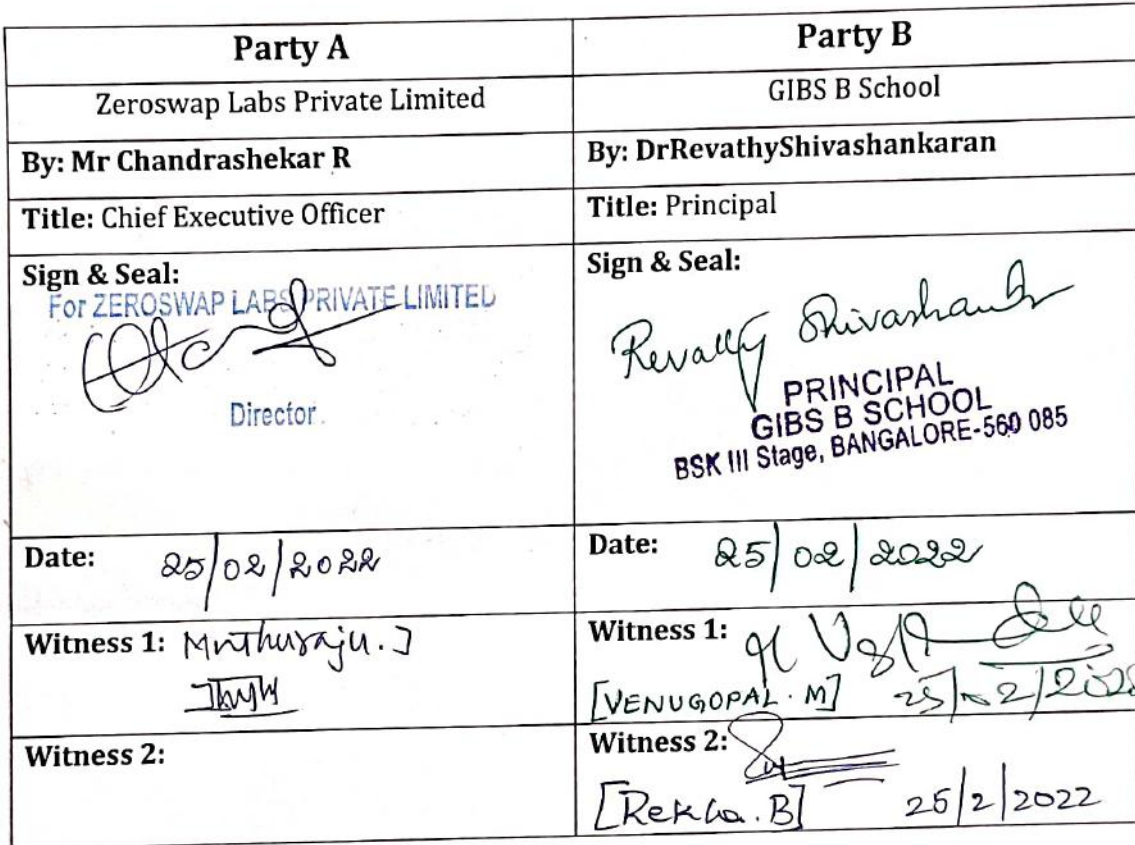 Party A
Party B
Zeroswap Labs Private Limited
GIBS B School
By: Mr Chandrashekar R
By: DrRevathyShivashankaran
Title: Chief Executive Officer
Title: Principal
Sign & Seal:
For ZEROSWAP LABS PRIVATE LIMITED
Director
Sign & Seal:
PRINCIPAL
GIBS B SCHOOL
BSK III Stage, BANGALORE-560 085
Date: 25/02/2022
Date: 25/02/2022
Witness 1: Muthuraju. J
Witness 1:
[VENUGOPAL. M] 25/02/2022
Witness 2:
Witness 2:
[Rekha. B] 25/2/2022